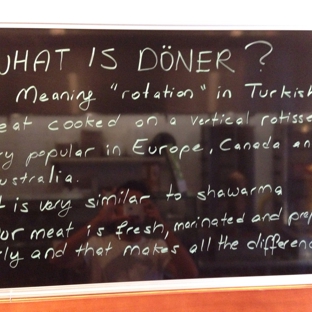 WHAT IS DÖNER ?
Meaning "rotation" in Turkish
eat cooked on a vertical rotisse
ry popular in Europe, Canada an
ustralia.
t is very similar to shawarma
ur meat is fresh, marinated and prop
rly and that makes all the differenc